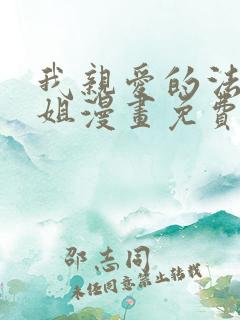 我親愛的法
姐漫畫免費
邵志同
未任同意禁止转载